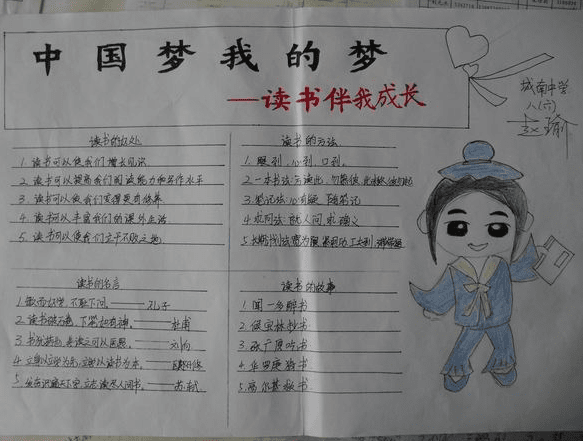 中国梦我的梦
——读书伴我成长
城南中学
八(六)
读书的好处
1. 读书可以使我们增长见识
2. 读书可以提高我们阅读能力和写作水平
3. 读书可以使我们变得更有修养
4. 读书可以丰富我们的课外生活
5. 读书可以使我们立于不败之地
读书的方法
1. 眼到,心到,口到。
2. 一本书法:方读此,勿慕彼,此未终,彼勿起
3. 笔记法:心有疑 随笔记
4. 求问法:就人问 求确义
5. 长期计划法:宽为限 紧用功 工夫到 滞塞通
读书的名言
1. 敏而好学,不耻下问。——孔子
2. 读书破万卷,下笔如有神。——杜甫
3. 书犹药也,善读之可以医愚。——刘向
4. 立身以立学为先,立学以读书为本。——欧阳修
5. 发奋识遍天下字,立志读尽人间书。——苏轼
读书的故事
1. 闻一多醉书
2. 侯宝林抄书
3. 张广厚吃书
4. 华罗庚猜书
5. 高尔基救书